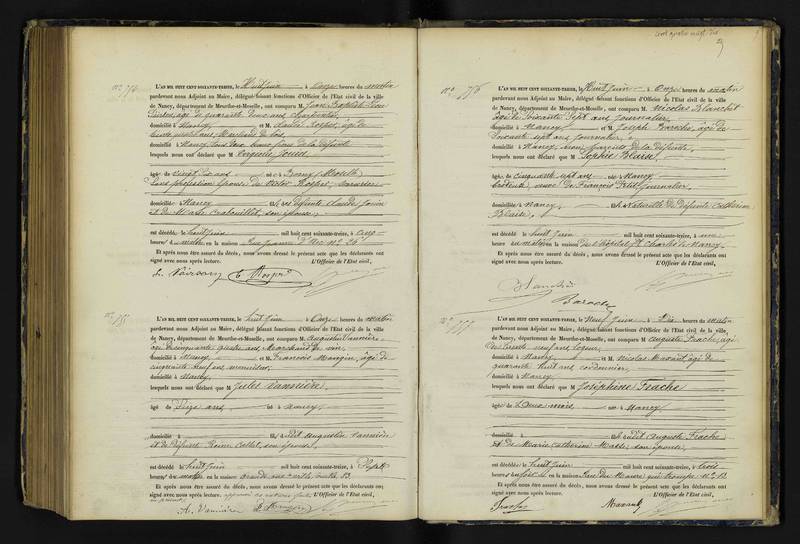 L'AN MIL HUIT CENT SOIXANTE-TREIZE, le huit Juin à onze heures du matin
pardevant nous Adjoint au Maire, délégué faisant fonctions d'Officier de l'Etat civil de la ville
de Nancy, département de Meurthe-et-Moselle, ont comparu M. Jean Baptiste
âgé de quarante deux ans charpentier,
domicilié à Nancy et M. âgé de
domicilié à Nancy de la défunte
lesquels nous ont déclaré que M Virginie Jouin
âgée de vingt six ans née à (Moselle)
Sans profession épouse de Victor
domicilié à Nancy fille de défunts Claude Jouin
et de Marie son épouse,
est décédée le huit Juin mil huit cent soixante-treize, à cinq
heures du matin en la maison Rue Jeanne d'Arc no. 26
Et après nous être assuré du décès, nous avons dressé le présent acte que les déclarants ont
signé avec nous après lecture. L'Officier de l'Etat civil,
755
L'AN MIL HUIT CENT SOIXANTE-TREIZE, le huit Juin à onze heures du matin
pardevant nous Adjoint au Maire, délégué faisant fonctions d'Officier de l'Etat civil de la ville
de Nancy, département de Meurthe-et-Moselle, ont comparu M. Augustin Vannière
âgé de cinquante quatre ans, Marchand de vin,
domicilié à Nancy et M. François Mangin, âgé de
cinquante neuf ans menuisier
domicilié à Nancy
lesquels nous ont déclaré que M Jules Vannière,
âgé de Seize ans né à Nancy,
domicilié à fils dudit Augustin Vannière
et de défunte Reine Collet, son épouse,
est décédé le huit Juin mil huit cent soixante-treize, à Sept
heures du matin en la maison Grande rue ville vieille 13.
Et après nous être assuré du décès, nous avons dressé le présent acte que les déclarants ont
signé avec nous après lecture. L'Officier de l'Etat civil,
A. Vannière Mangin
756
L'AN MIL HUIT CENT SOIXANTE-TREIZE, le huit Juin à Onze heures du matin
pardevant nous Adjoint au Maire, délégué faisant fonctions d'Officier de l'Etat civil de la ville
de Nancy, département de Meurthe-et-Moselle, ont comparu M. Nicolas Blanchet
âgé de Soixante Sept ans journalier,
domicilié à Nancy et M. Joseph âgé de
Soixante sept ans journalier,
domicilié à Nancy, non parents de la défunte,
lesquels nous ont déclaré que M Sophie Blaise,
âgée de cinquante sept ans née à Nancy
brodeuse, veuve de François Petit journalier,
domiciliée à Nancy, fille Naturelle de défunte Catherine
Blaise,
est décédée le huit Juin mil huit cent soixante-treize, à une
heure du matin en la maison de l'hôpital St. Charles à Nancy.
Et après nous être assuré du décès, nous avons dressé le présent acte que les déclarants ont
signé avec nous après lecture. L'Officier de l'Etat civil,
757
L'AN MIL HUIT CENT SOIXANTE-TREIZE, le Neuf Juin à Dix heures du matin
pardevant nous Adjoint au Maire, délégué faisant fonctions d'Officier de l'Etat civil de la ville
de Nancy, département de Meurthe-et-Moselle, ont comparu M. Auguste Frache, âgé
de Trente neuf ans,
domicilié à Nancy et M. Nicolas âgé de
quarante huit ans cordonnier,
domicilié à Nancy
lesquels nous ont déclaré que M Joséphine Frache
âgée de Deux mois née à Nancy
domicilié à fille dudit Auguste Frache
et de Marie Catherine son épouse,
est décédée le huit Juin mil huit cent soixante-treize, à trois
heures du soir en la maison Rue du Maure qui trompe no. 13
Et après nous être assuré du décès, nous avons dressé le présent acte que les déclarants ont
signé avec nous après lecture. L'Officier de l'Etat civil,